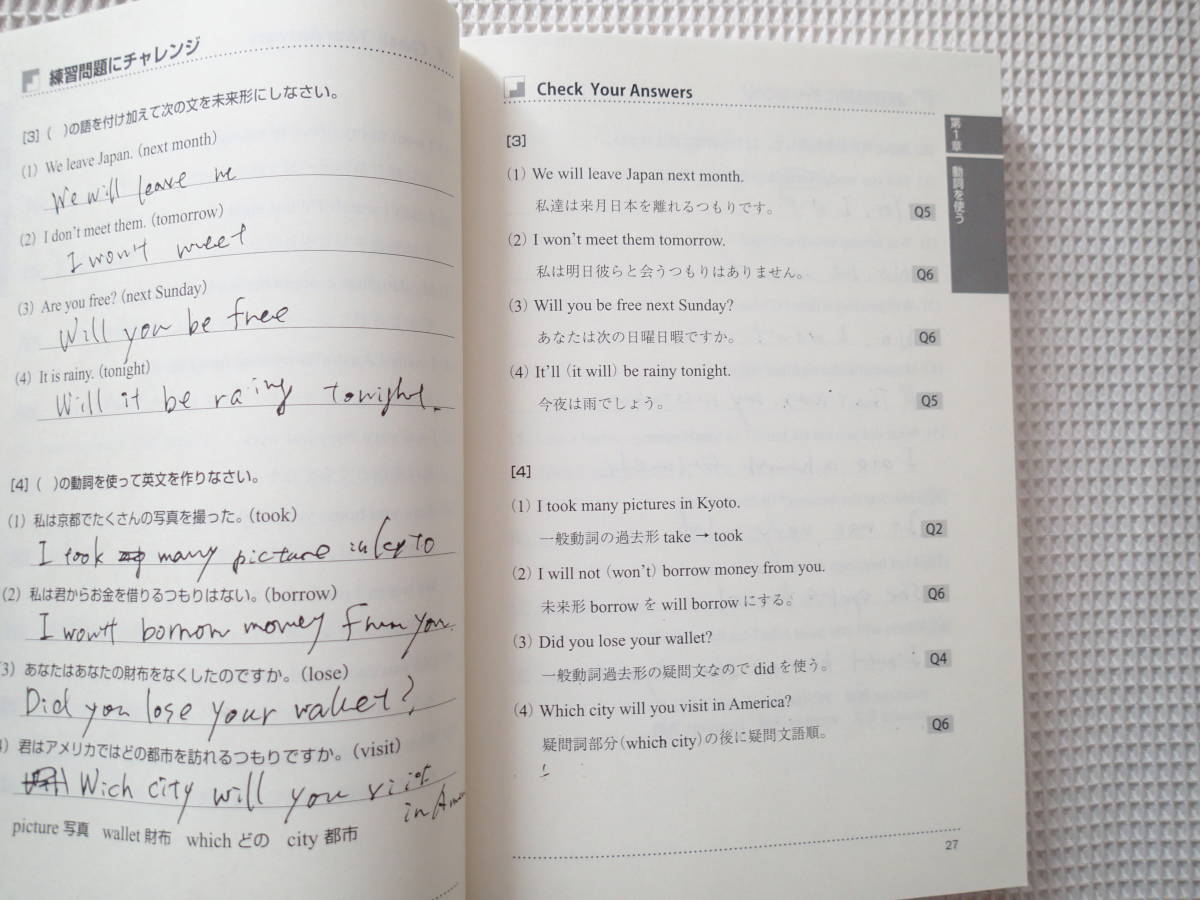 練習問題にチャレンジ
[3] ( )の語を付け加えて次の文を未来形にしなさい。
(1) We leave Japan. (next month)
We will leave
(2) I don't meet them. (tomorrow)
I won't meet
(3) Are you free? (next Sunday)
Will you be free
(4) It is rainy. (tonight)
Will it be rainy tonight.
[4] ( )の動詞を使って英文を作りなさい。
(1) 私は京都でたくさんの写真を撮った。(took)
I took many picture in
(2) 私は君からお金を借りるつもりはない。(borrow)
I won't borrow money from you.
3) あなたはあなたの財布をなくしたのですか。(lose)
Did you lose your wallet?
) 君はアメリカではどの都市を訪れるつもりですか。(visit)
Wich city will you visit
in
picture 写真 wallet 財布 which どの city 都市
Check Your Answers
[3]
(1) We will leave Japan next month.
私達は来月日本を離れるつもりです。 Q5
(2) I won't meet them tomorrow.
私は明日彼らと会うつもりはありません。 Q6
(3) Will you be free next Sunday?
あなたは次の日曜日暇ですか。 Q6
(4) It'll (it will) be rainy tonight.
今夜は雨でしょう。 Q5
[4]
(1) I took many pictures in Kyoto.
一般動詞の過去形 take → took Q2
(2) I will not (won't) borrow money from you.
未来形 borrow を will borrow にする。 Q6
(3) Did you lose your wallet?
一般動詞過去形の疑問文なので did を使う。 Q4
(4) Which city will you visit in America?
疑問詞部分(which city)の後に疑問文語順。 Q6
27
第1章
動詞を使う